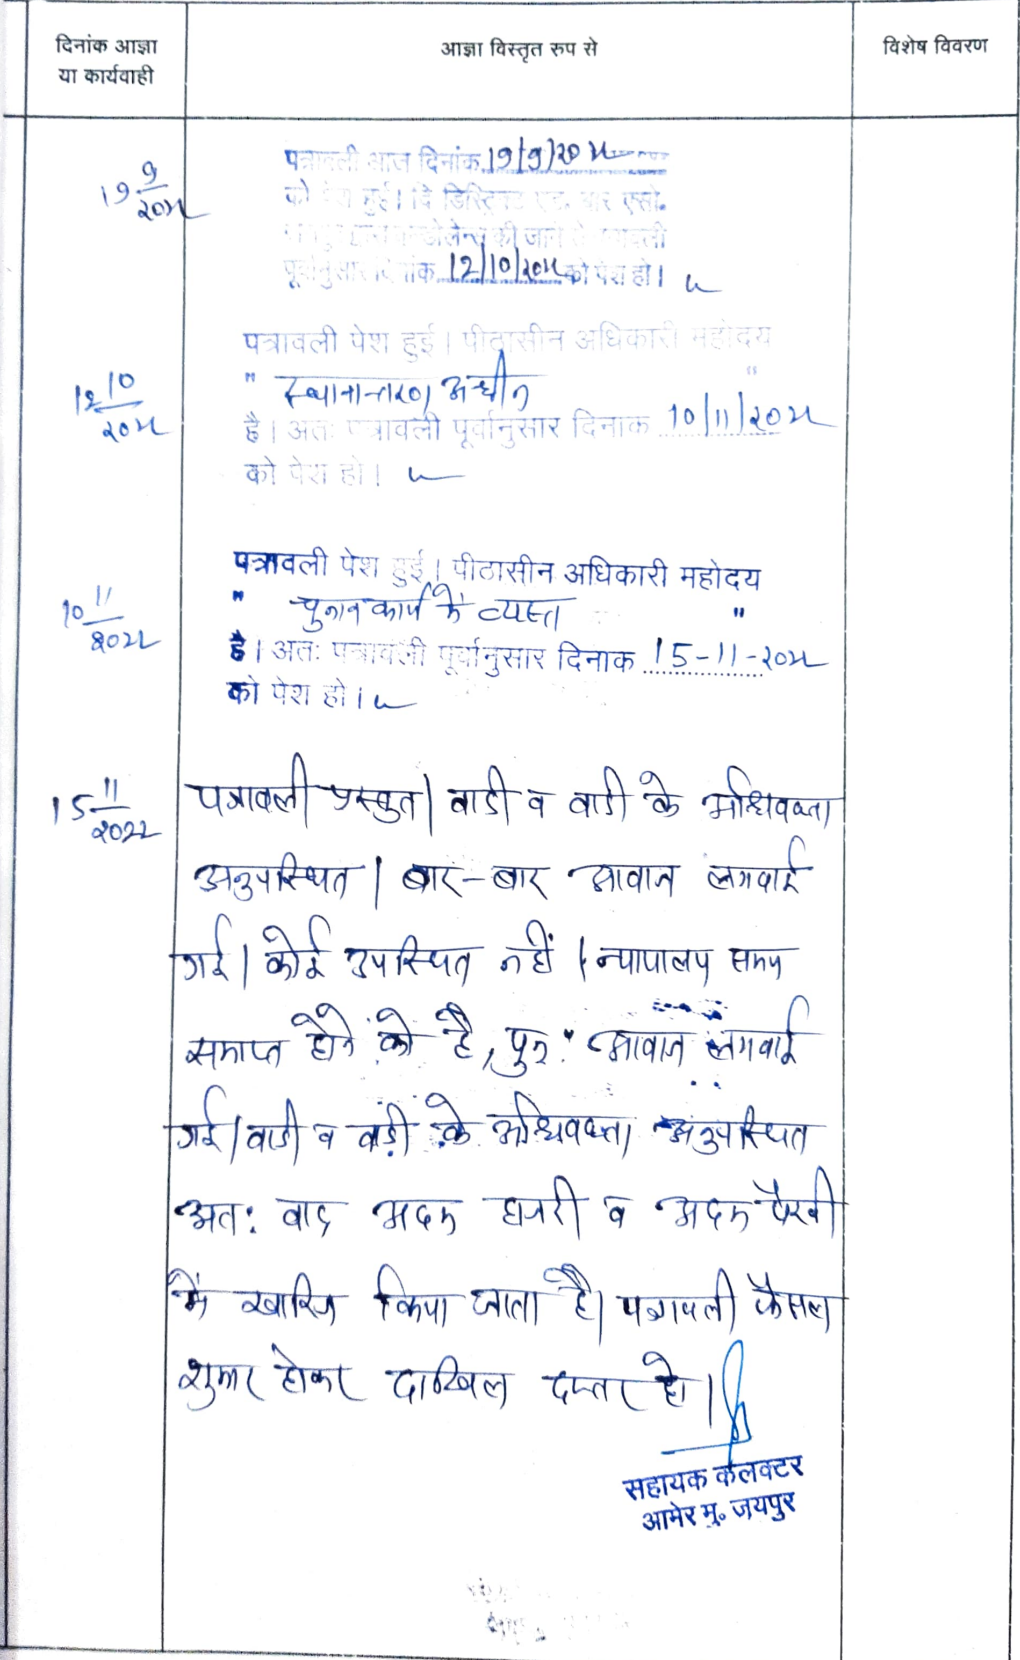 दिनांक आज्ञा
या कार्यवाही
आज्ञा विस्तृत रुप से
विशेष विवरण
19 9/2022
पत्रावली आज दिनांक 19/9/2022
को पेश हुई। दि डिस्ट्रिक्ट एड. बार एसो.
की जाने से पत्रावली
पूर्वानुसार दिनांक 12/10/2022 को पेश हो।
12 10/2022
पत्रावली पेश हुई। पीठासीन अधिकारी महोदय
" स्थानान्तरण अधीन "
है। अतः पत्रावली पूर्वानुसार दिनाक 10/11/2022
को पेश हो।
10 11/2022
पत्रावली पेश हुई। पीठासीन अधिकारी महोदय
" चुनाव कार्य में व्यस्त "
है। अतः पत्रावली पूर्वानुसार दिनाक 15-11-2022
को पेश हो।
15 11/2022
पत्रावली प्रस्तुत। वादी व वादी के अधिवक्ता
अनुपस्थित। बार-बार आवाज लगवाई
गई। कोई उपस्थित नहीं। न्यायालय समय
समाप्त होने को है, पुनः आवाज लगवाई
गई। वादी व वादी के अधिवक्ता अनुपस्थित
अतः वाद अदम हाजरी व अदम पैरवी
में खारिज किया जाता है। पत्रावली फैसल
शुमार होकर दाखिल दफ्तर हो।
सहायक कलक्टर
आमेर मु. जयपुर